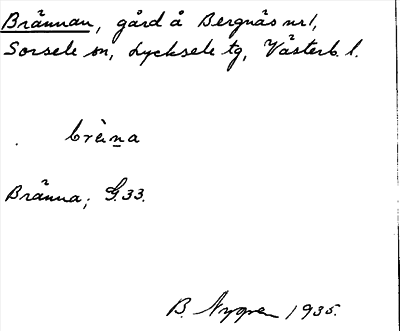 Brännan, gård å Bergnäs nr 1,
Sorsele sn, Lycksele tg, Västerb. l.
brèna
Bränna; G. 33.
B. Nygren 1935.